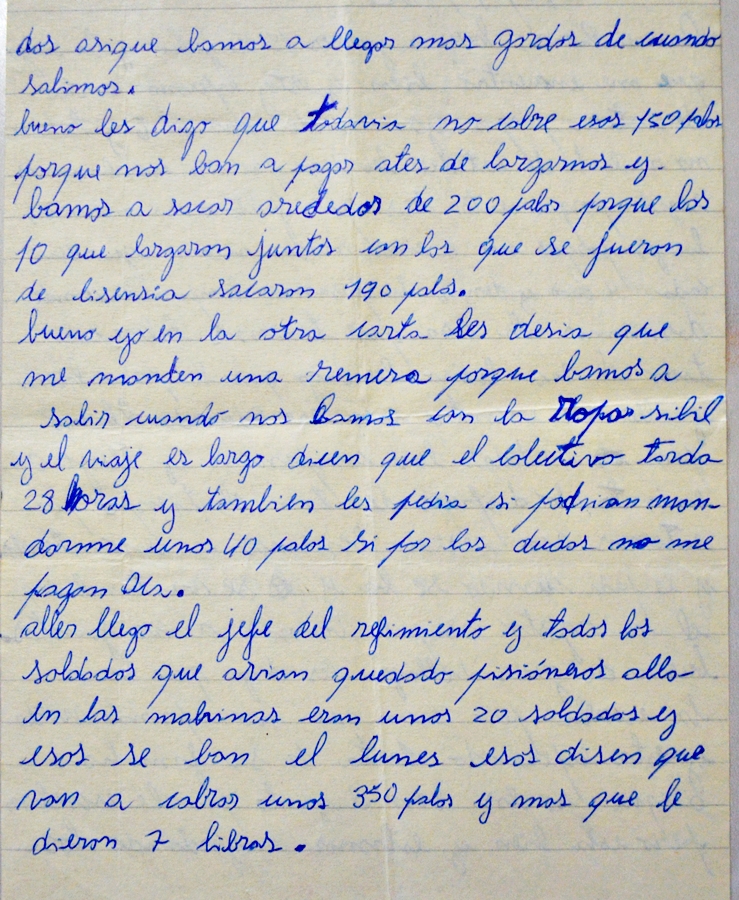 dos asique bamos a llegar mas gordos de cuando
salimos.
bueno les digo que todavia no cobre esos 150 palos
porque nos ban a pagar ates de largarnos y
bamos a sacar arededor de 200 palos porque los
10 que largaron juntos con los que se fueron
de lisensia sacaron 190 palos.
bueno yo en la otra carta les desia que
me manden una remera porque bamos a
salir cuando nos bamos con la ropa sibil
y el viaje es largo dicen que el colectivo tarda
28 horas y tambien les pedia si podrian man-
darme unos 40 palos si por las dudas no me
pagan
aller llego el jefe del regimiento y todos los
soldados que avian quedado pisióneros alla
en las malvinas eran unos 20 soldados y
esos se ban el lunes esos disen que
van a cobrar unos 350 palos y mas que le
dieron 7 libras.